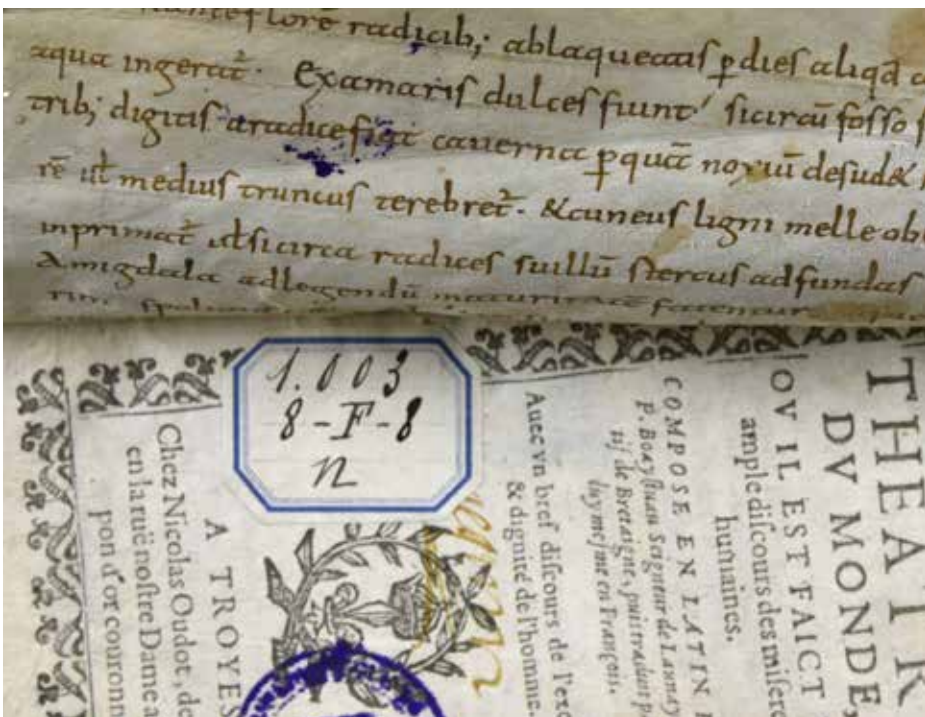 flore radicib; ablaqueatis ꝑ dies aliqd̄ a
aqua ingerat̃. Examaris dulces fiunt' sicircū fosso
trib; digitis aradice fiat cauerna ꝑquā noxiū desud&
rē ul̄ medius truncus terebret̃. &cuneus ligni melle ob
inprimat̃ ul̄ sicirca radices suillū stercus adfundas
Amigdala adlegendū maturitatē fatentur
1.003
8-F-8
n
THEATR
DV MONDE,
OV IL EST FAICT
ample diſcours des miſere
humaines.
COMPOSE EN LATIN
P. Boayſtuau Seigneur de Launay
tif de Bretaigne, puis traduit p
luy meſme en François.
Auec vn bref diſcours de l'exc
& dignité de l'homme.
A TROYES
Chez Nicolas Oudot, de
en la ruë noſtre Dame a
pon d'or couronn